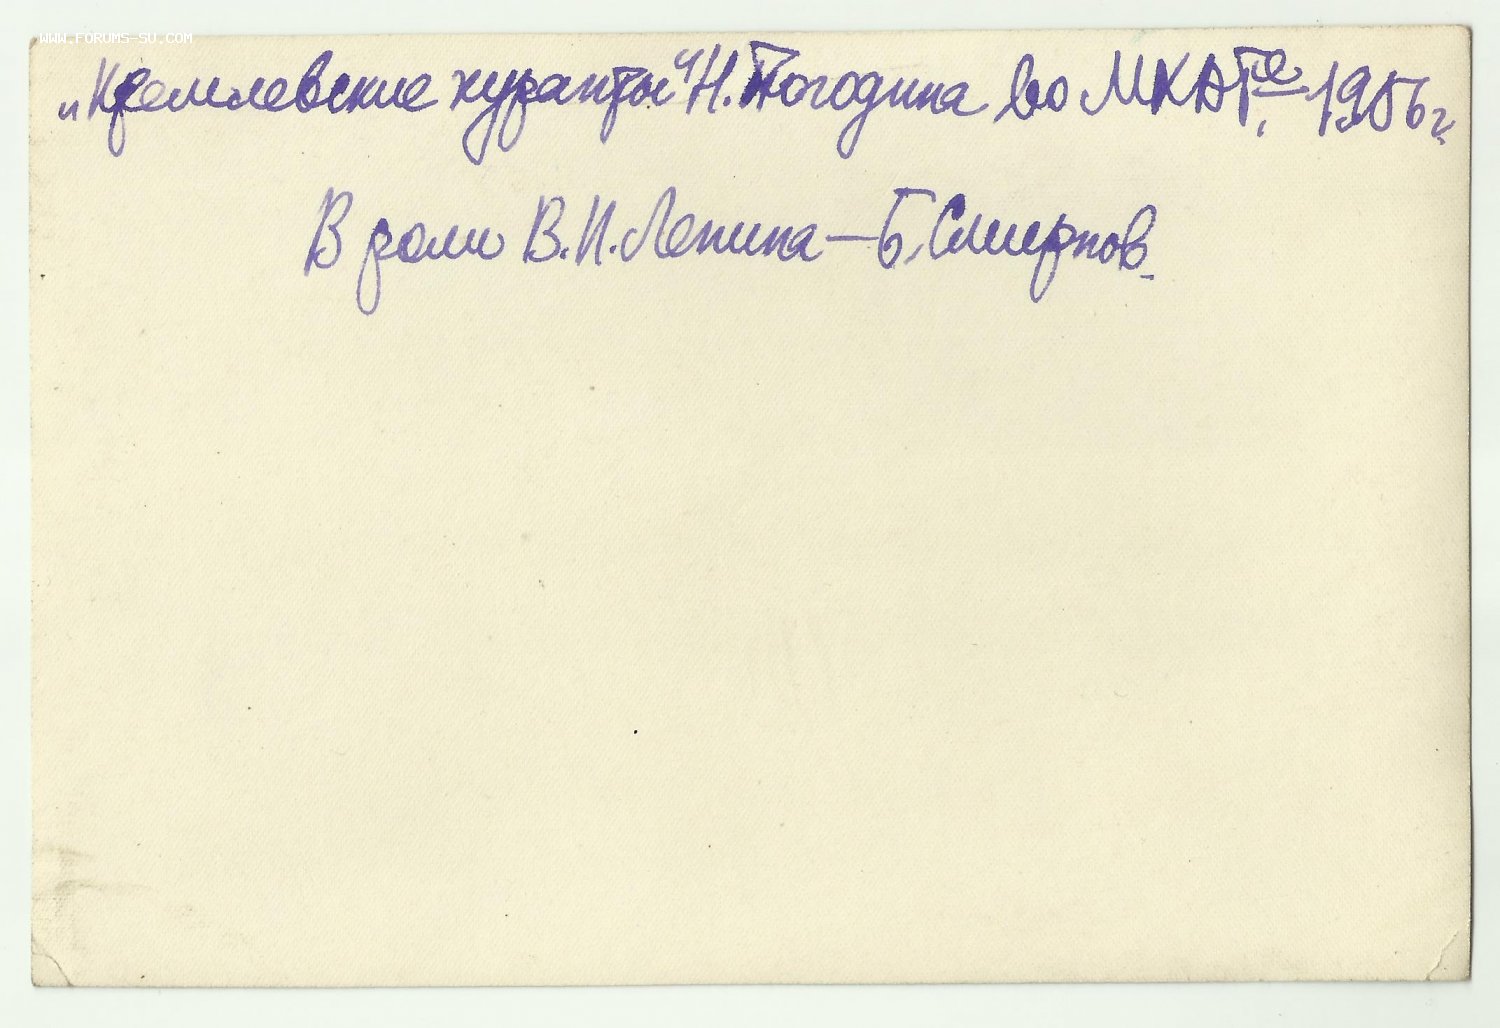 WWW.FORUMS-SU.COM
„Кремлевские куранты“ Н. Погодина во МХАТе, 1956 г.
В роли В. И. Ленина — Б. Смирнов.